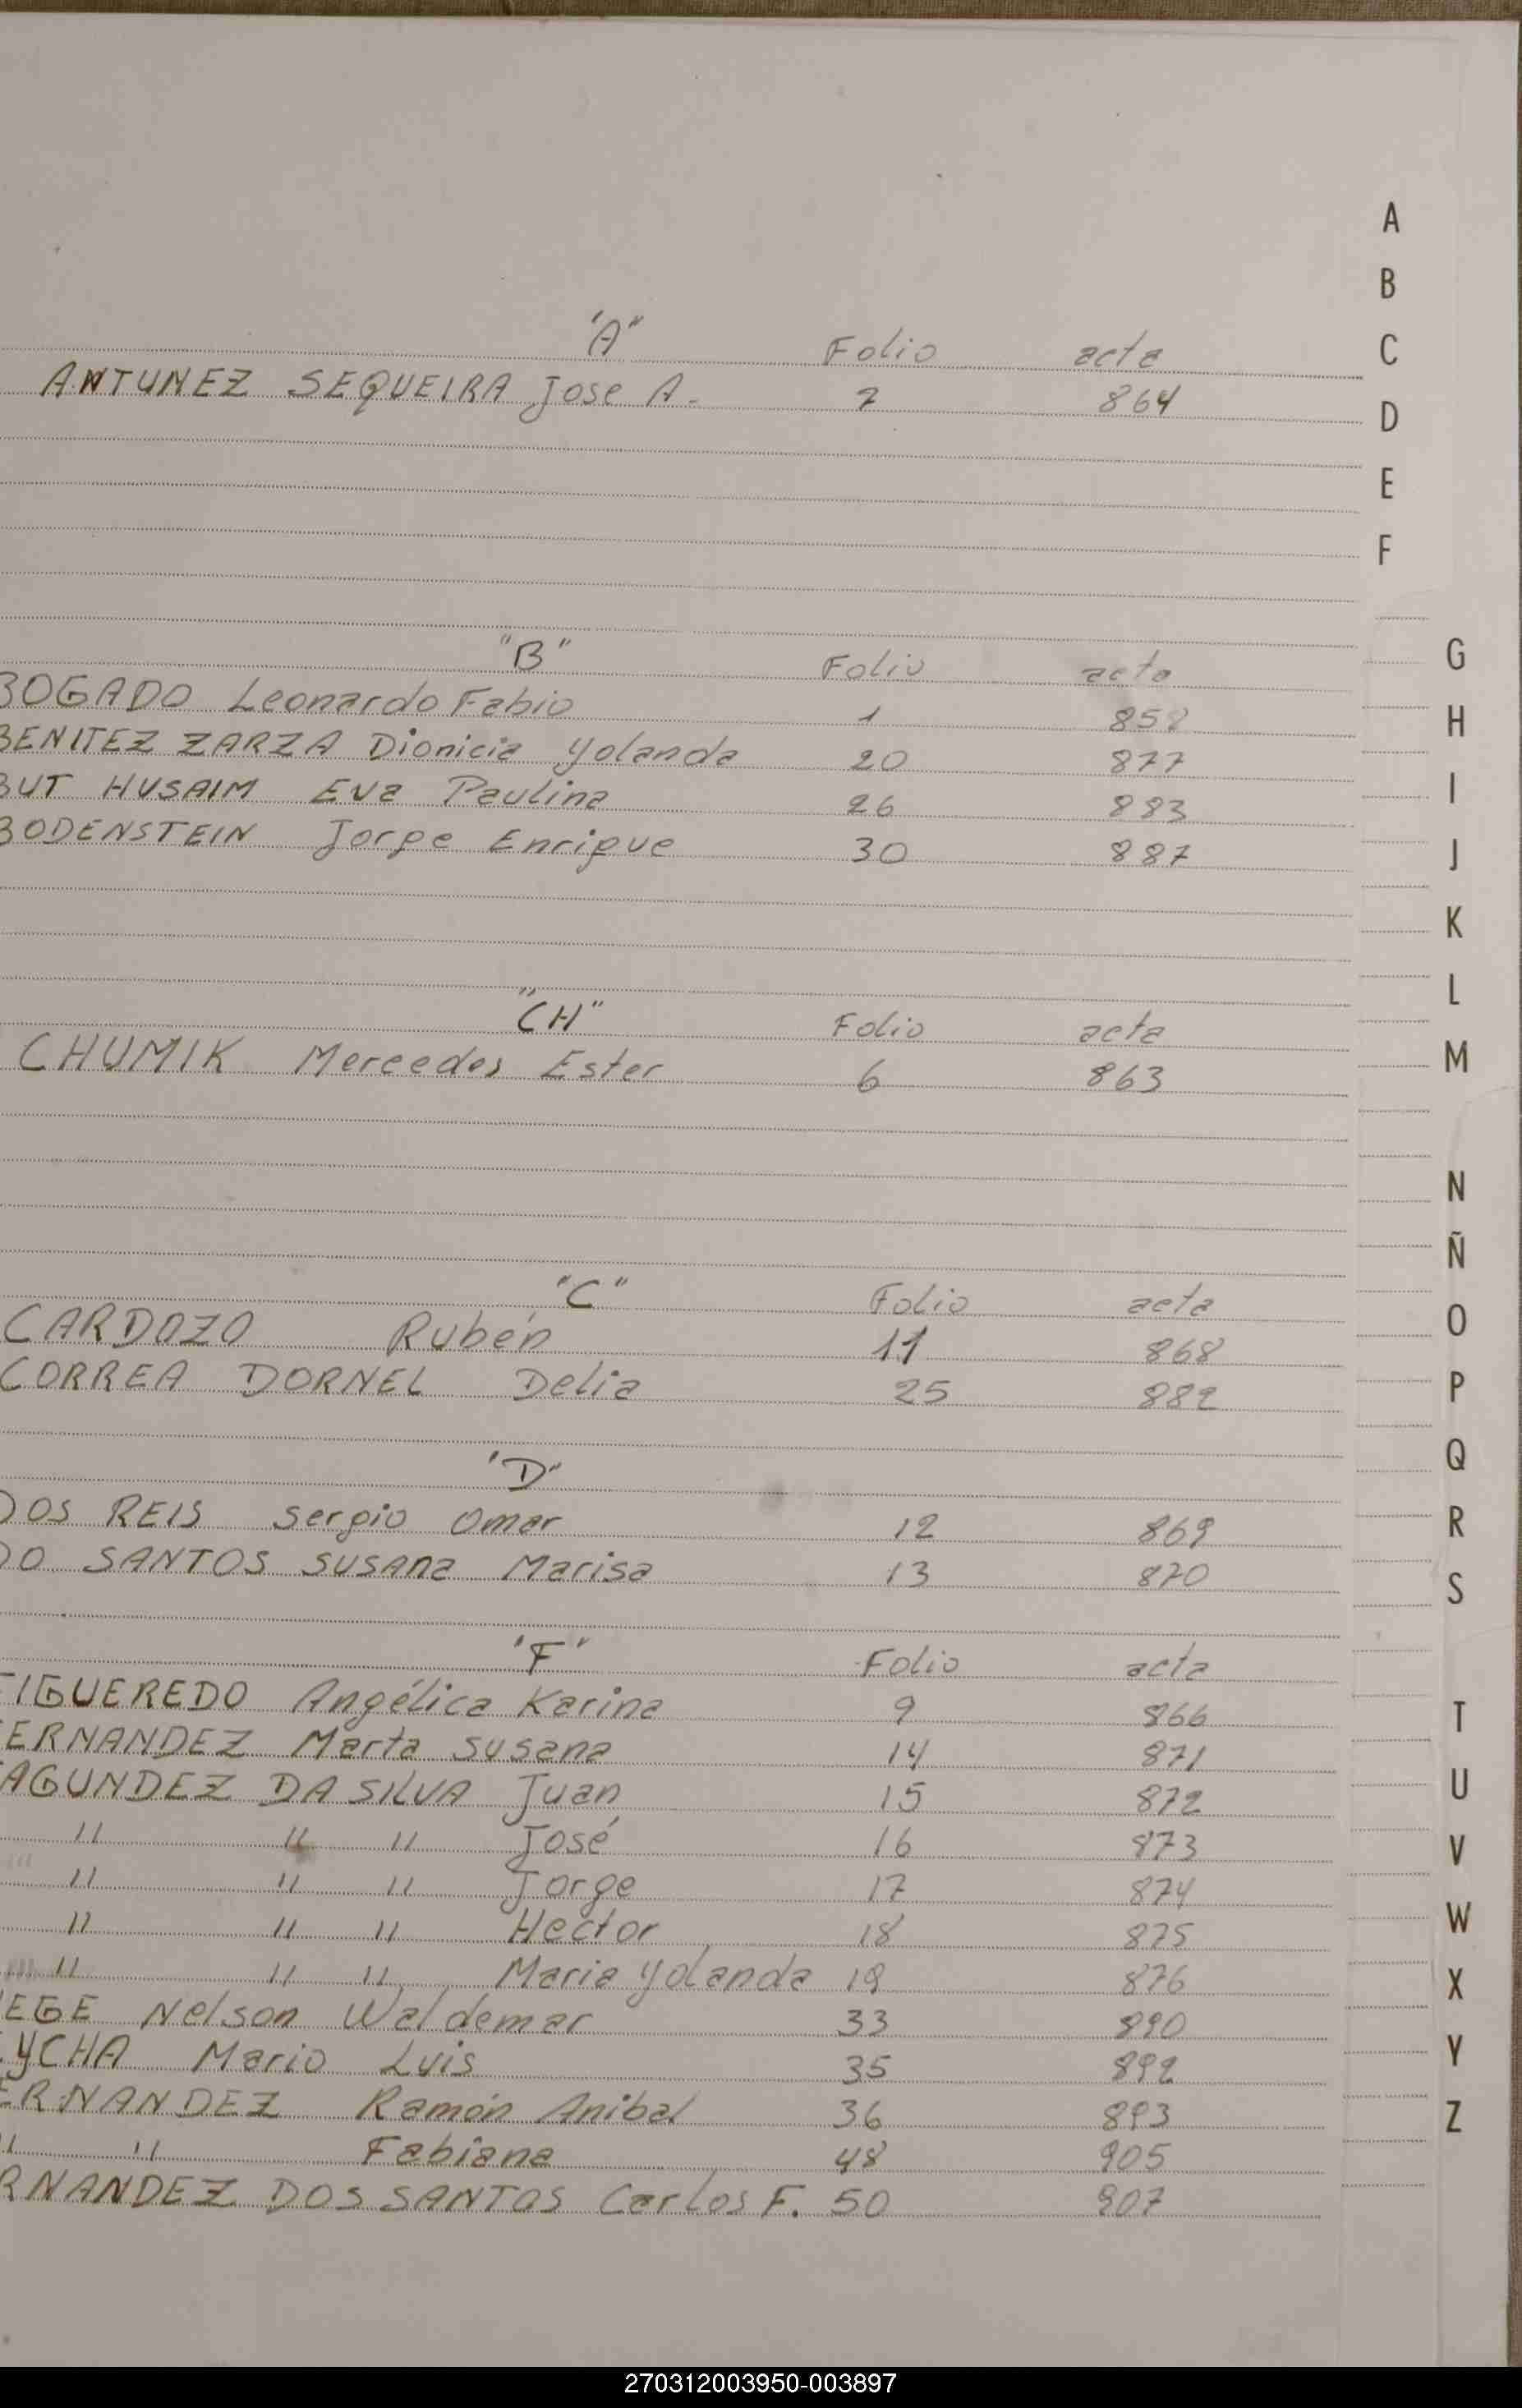 "A" Folio acta
ANTUNEZ SEQUEIRA Jose A. 7 864
"B" Folio acta
BOGADO Leonardo Fabio 1 858
BENITEZ ZARZA Dionicia Yolanda 20 877
BUT HUSAIM Eva Paulina 26 883
BODENSTEIN Jorge Enrique 30 887
"CH" Folio acta
CHUMIK Mercedes Ester 6 863
"C" Folio acta
CARDOZO Rubén 11 868
CORREA DORNEL Delia 25 882
"D"
DOS REIS Sergio Omar 12 869
DO SANTOS SUSANA Marisa 13 870
"F" Folio acta
FIGUEREDO Angélica Karina 9 866
ERNANDEZ Marta Susana 14 871
AGUNDEZ DA SILVA Juan 15 872
" " " José 16 873
" " " Jorge 17 874
" " " Hector 18 875
" " " Maria Yolanda 19 876
EGE Nelson Waldemar 33 890
YCHA Mario Luis 35 892
ERNANDEZ Ramón Anibal 36 893
" " Fabiana 48 905
RNANDEZ DOS SANTOS Carlos F. 50 907
A
B
C
D
E
F
G
H
I
J
K
L
M
N
Ñ
O
P
Q
R
S
T
U
V
W
X
Y
Z
270312003950-003897